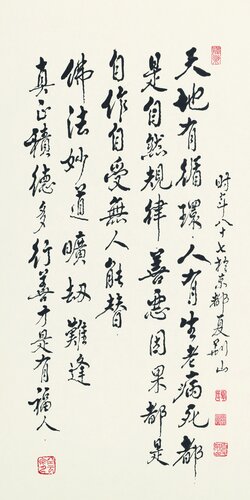 天地有循環人有生老病死都
是自然規律善惡因果都是
自作自受無人能替
佛法妙道曠劫難逢
真正積德多行善才是有福人
時年八十七於京都夏荆山